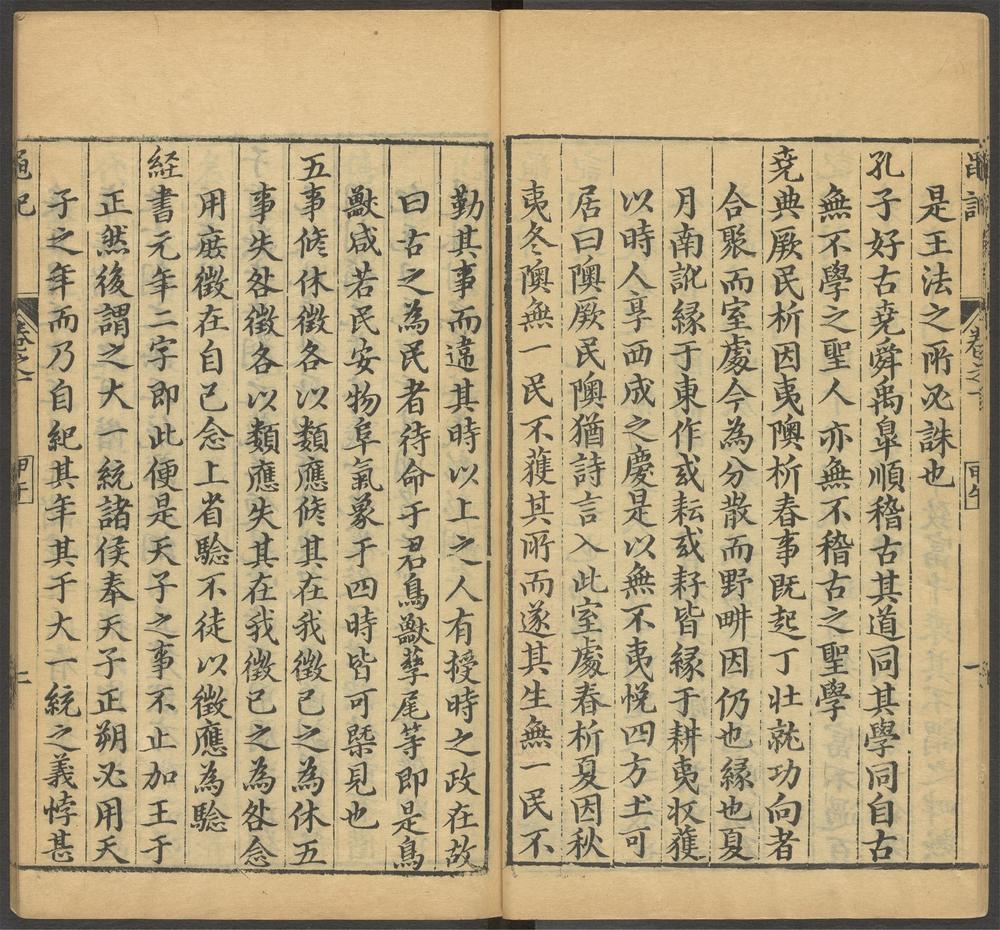 是王法之所必誅也
孔子好古堯舜禹臯順稽古其道同其學同自古
無不學之聖人亦無不稽古之聖學
堯典厥民析因夷隩析春事既起丁壯就功向者
合聚而室處今為分散而野畊因仍也緣也夏
月南訛緣于東作或耘或耔皆緣于耕夷收獲
以時人享西成之慶是以無不夷悅四方土可
居曰隩厥民隩猶詩言入此室處春析夏因秋
夷冬隩無一民不獲其所而遂其生無一民不
卷之一
甲午
一
勤其事而違其時以上之人有授時之政在故
曰古之為民者待命于君鳥獸孳尾等即是鳥
獸咸若民安物阜氣象于四時皆可槩見也
五事修休徵各以類應修其在我徵已之為休五
事失咎徵各以類應失其在我徵已之為咎念
用庶徵在自己念上省驗不徒以徵應為驗
経書元年二字即此便是天子之事不止加王于
正然後謂之大一統諸侯奉天子正朔必用天
子之年而乃自紀其年其于大一統之義悖甚